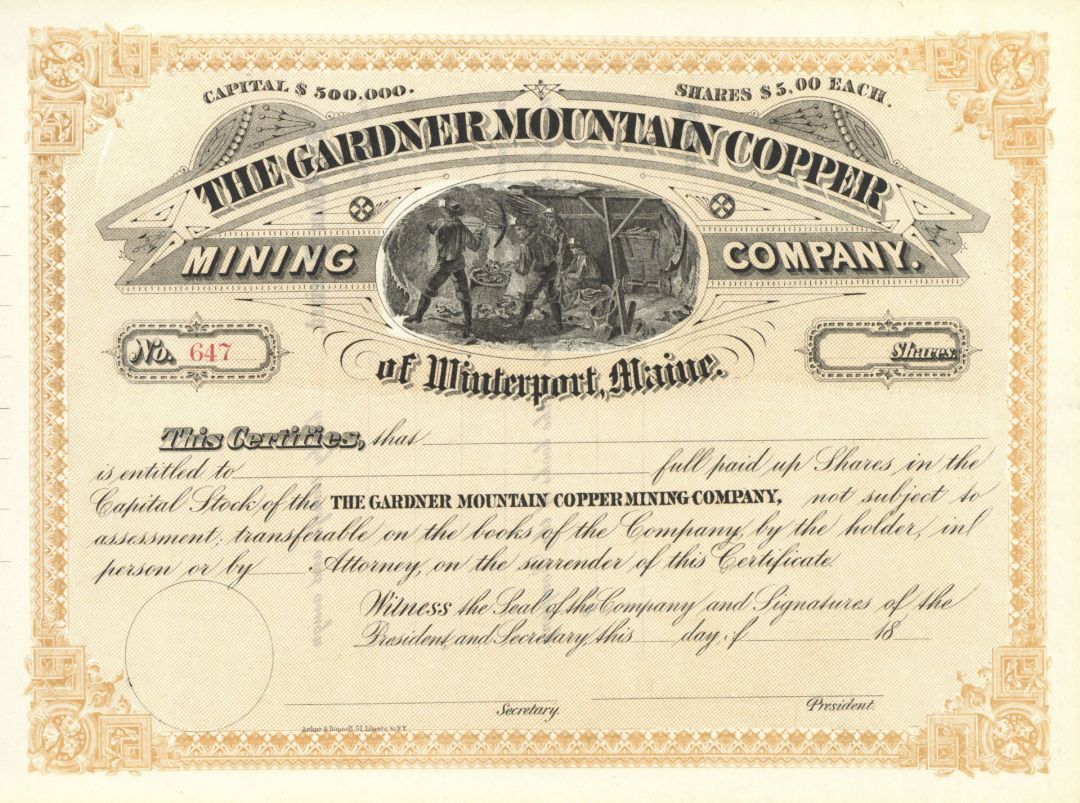 CAPITAL $ 500.000.
SHARES $5.00 EACH.
THE GARDNER MOUNTAIN COPPER
MINING COMPANY.
of Winterport, Maine.
No. 647
Shares
This Certifies, that
is entitled to full paid up Shares in the
Capital Stock of the THE GARDNER MOUNTAIN COPPER MINING COMPANY, not subject to
assessment; transferable on the books of the Company, by the holder, in
person or by Attorney, on the surrender of this Certificate.
Witness the Seal of the Company and Signatures of the
President and Secretary, this day of 18
Secretary.
President.
Arthur & Bonnell, 57, Liberty St. N.Y.